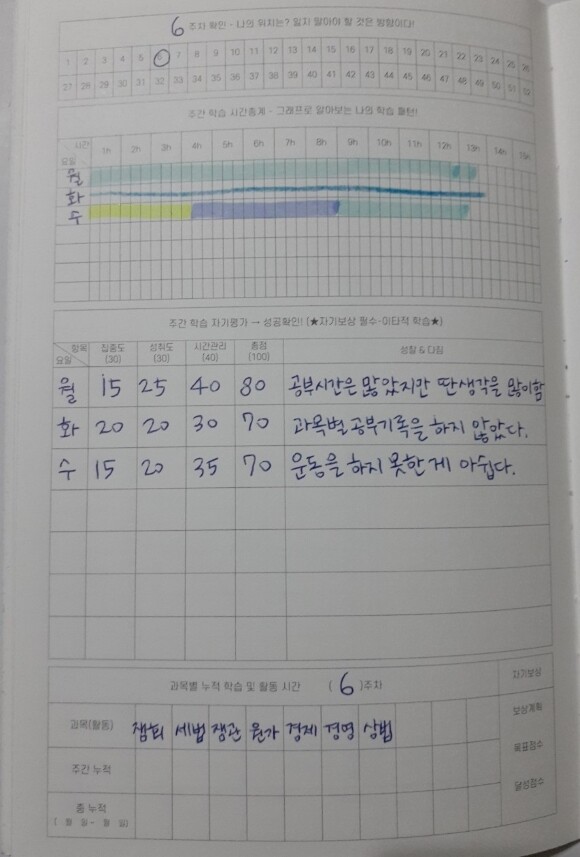 6 주차 확인 - 나의 위치는? 잊지 말아야 할 것은 방향이다!
1 2 3 4 5 6 7 8 9 10 11 12 13 14 15 16 17 18 19 20 21 22 23 24 25 26
27 28 29 30 31 32 33 34 35 36 37 38 39 40 41 42 43 44 45 46 47 48 49 50 51 52
주간 학습 시간통계 - 그래프로 알아보는 나의 학습 패턴!
시간 1h 2h 3h 4h 5h 6h 7h 8h 9h 10h 11h 12h 13h 14h 15h
요일
월
화
수
주간 학습 자기평가 → 성공확인! (★자기보상 필수-이타적 학습★)
항목 요일 집중도 (30) 성취도 (30) 시간관리 (40) 총점 (100) 성찰 & 다짐
월 15 25 40 80 공부시간은 많았지만 딴생각을 많이함
화 20 20 30 70 과목별 공부기록을 하지 않았다.
수 15 20 35 70 운동을 하지 못한 게 아쉽다.
과목별 누적 학습 및 활동 시간 ( 6 )주차 자기보상
과목(활동) 잼회 세법 잼관 원가 경제 경영 상법 보상계획
주간 누적 목표점수
총 누적 달성점수
( 월 일~ 월 일)